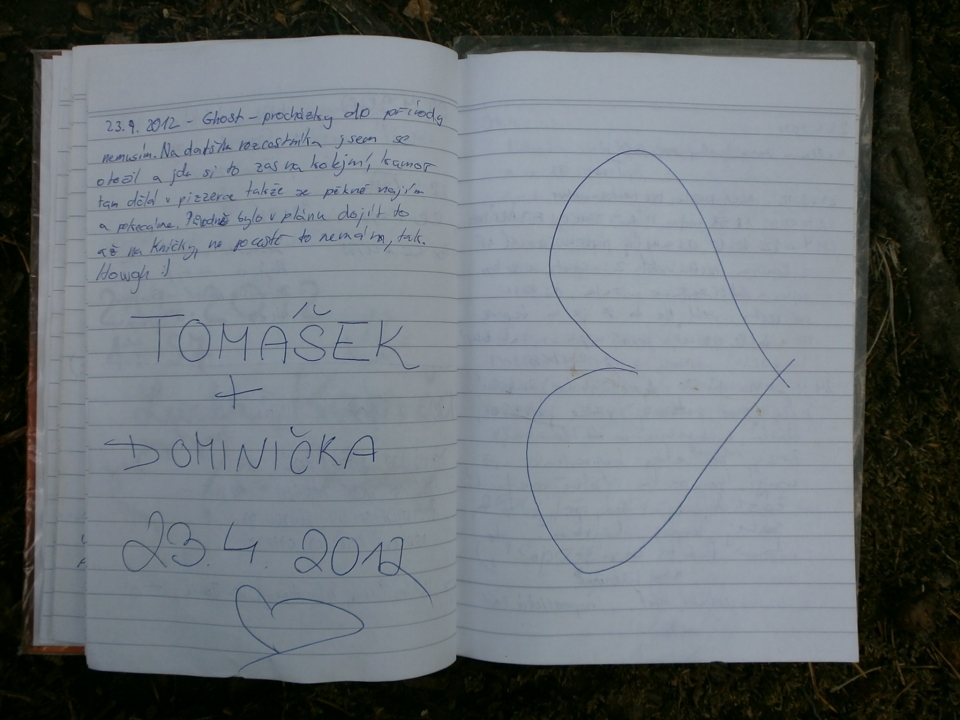 23.4.2012 - Ghost - procházky do přírody
nemusím. Na dalším rozcestníku jsem se
otočil a jdu si to zas na kolejni, kamoš
tam dělá v pizzerce takže se pěkně najím
a pokecáme. bylo v plánu dojít to
až na Kničky, ne počasí to nemám, tak.
Howgh :)
TOMÁŠEK
+
DOMINIČKA
23.4.2012